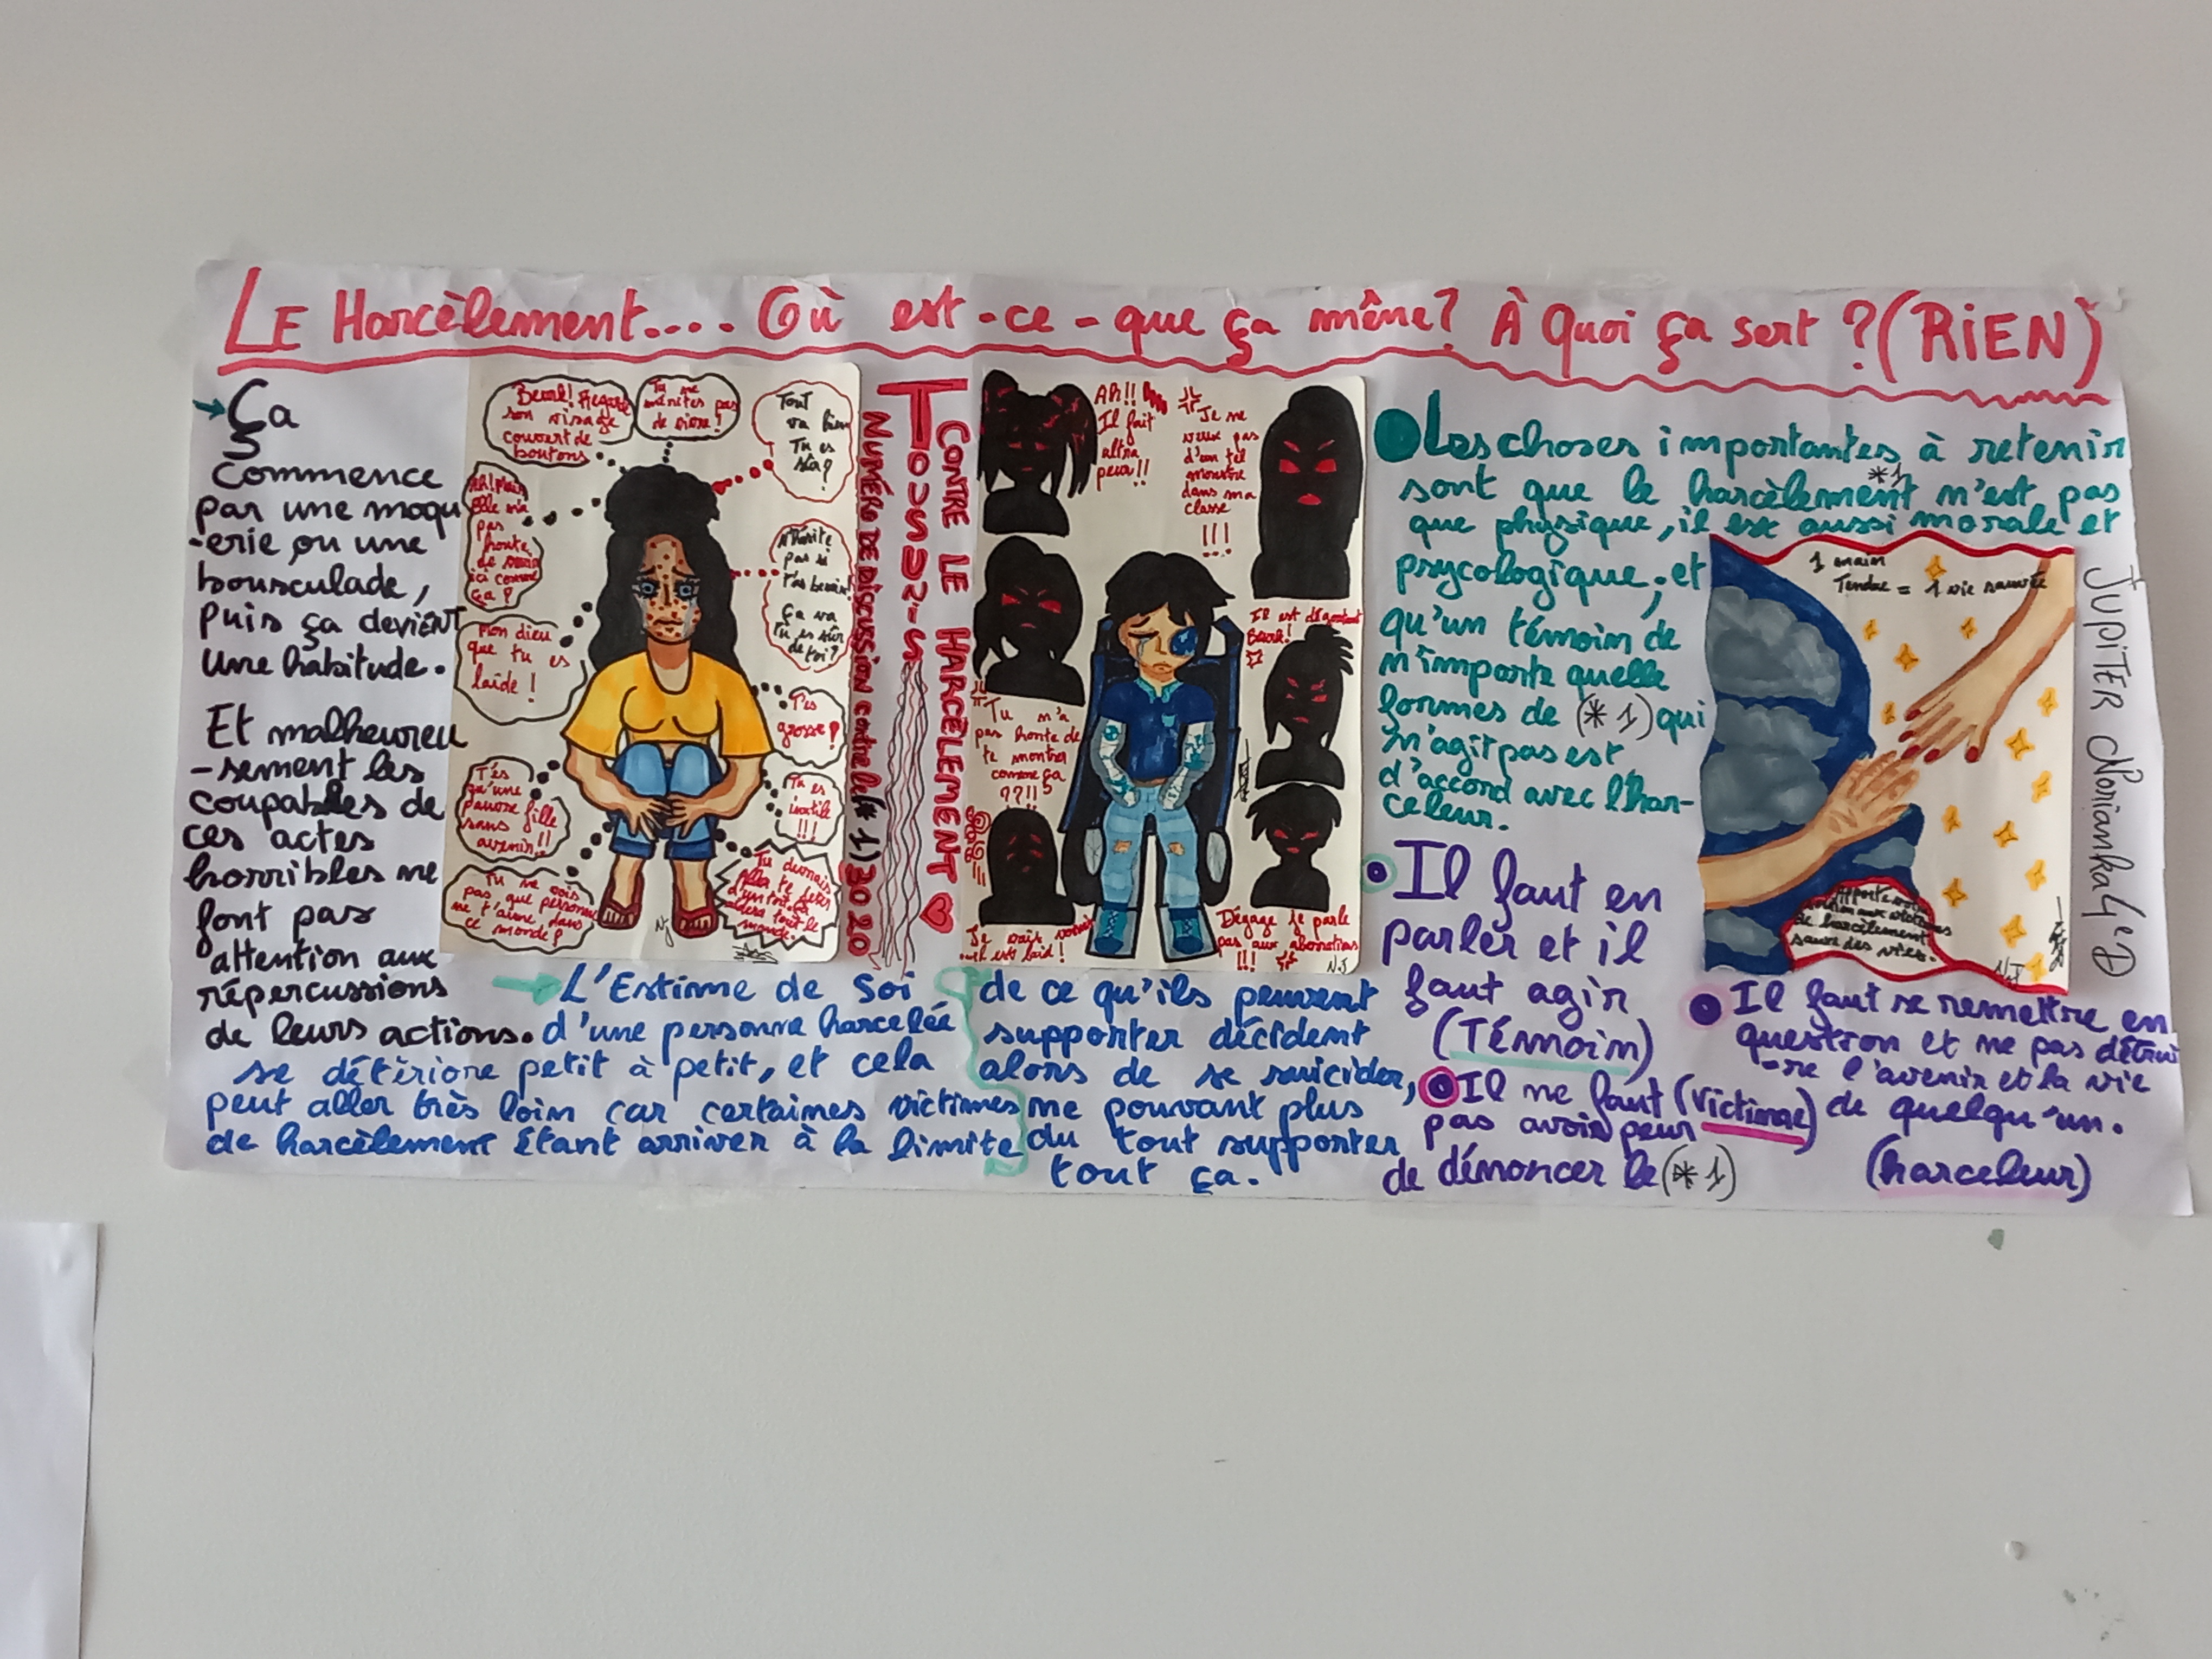 LE Harcèlement.... Où est-ce-que ça mène? À Quoi ça sert ? (RiEN)
Ça
commence
par une moqu
-erie, ou une
bousculade,
puis ça devient
une habitude.
Et malheureu
-sement les
coupables de
ces actes
horribles ne
font pas
attention aux
répercussions
de leurs actions.
Beurk! Regarde
son visage
couvert de
boutons
Tu ne
mérites pas
de vivre!
Tout
va bien
Tu es
sûr?
pas
honte
de venir
ici comme
ça?
N'hésite
pas si
t'as besoin!
Ça va
tu es sûr
de toi?
Mon dieu
que tu es
laide!
T'es
grosse!
T'es
qu'une
pauvre fille
sans
avenir!!
Tu es
inutile
!!!
Tu ne vois
pas que personne
ne t'aime dans
ce monde?
Tu devrais
aller te jeter
d'un toit. Ça
aidera tout le
monde.
NJ
TOUS UNiS
CONTRE LE HARCÈLEMENT
NUMÉRO DE DISCUSSION contre le (*1) 30 20
Ah!!
Il fait
ultra
peur!!
Je ne
veux pas
d'un tel
monstre
dans ma
classe
!!!
Il est dégoutant
Beurk!
Tu n'a
pas honte de
te montrer
comme ça
??!!
Je vais vomir
est laid!
Dégage je parle
pas aux aberrations
!!!
N.J
L'Estime de Soi
d'une personne harcelée
se détèriore petit à petit, et cela
peut aller très loin car certaines victimes
de harcèlement Étant arriver à la limite
de ce qu'ils peuvent
supporter décident
alors de se suicider,
ne pouvant plus
du tout supporter
tout ça.
Les choses importantes à retenir
sont que le harcèlement *1 n'est pas
que physique, il est aussi morale et
psycologique, et
qu'un témoin de
n'importe quelle
formes de (*1) qui
n'agit pas est
d'accord avec l'har-
celeur.
Il faut en
parler et il
faut agir
(TÉmoin)
Il ne faut (victime)
pas avoir peur
de dénoncer le (*1)
1 main
Tendue = 1 vie sauvée
de harcèlement
sauve des vies.
N.J
Il faut se remettre en
question et ne pas détrui
-re l'avenir et la vie
de quelqu'un.
(harceleur)
JUPITER Norianka 4°D